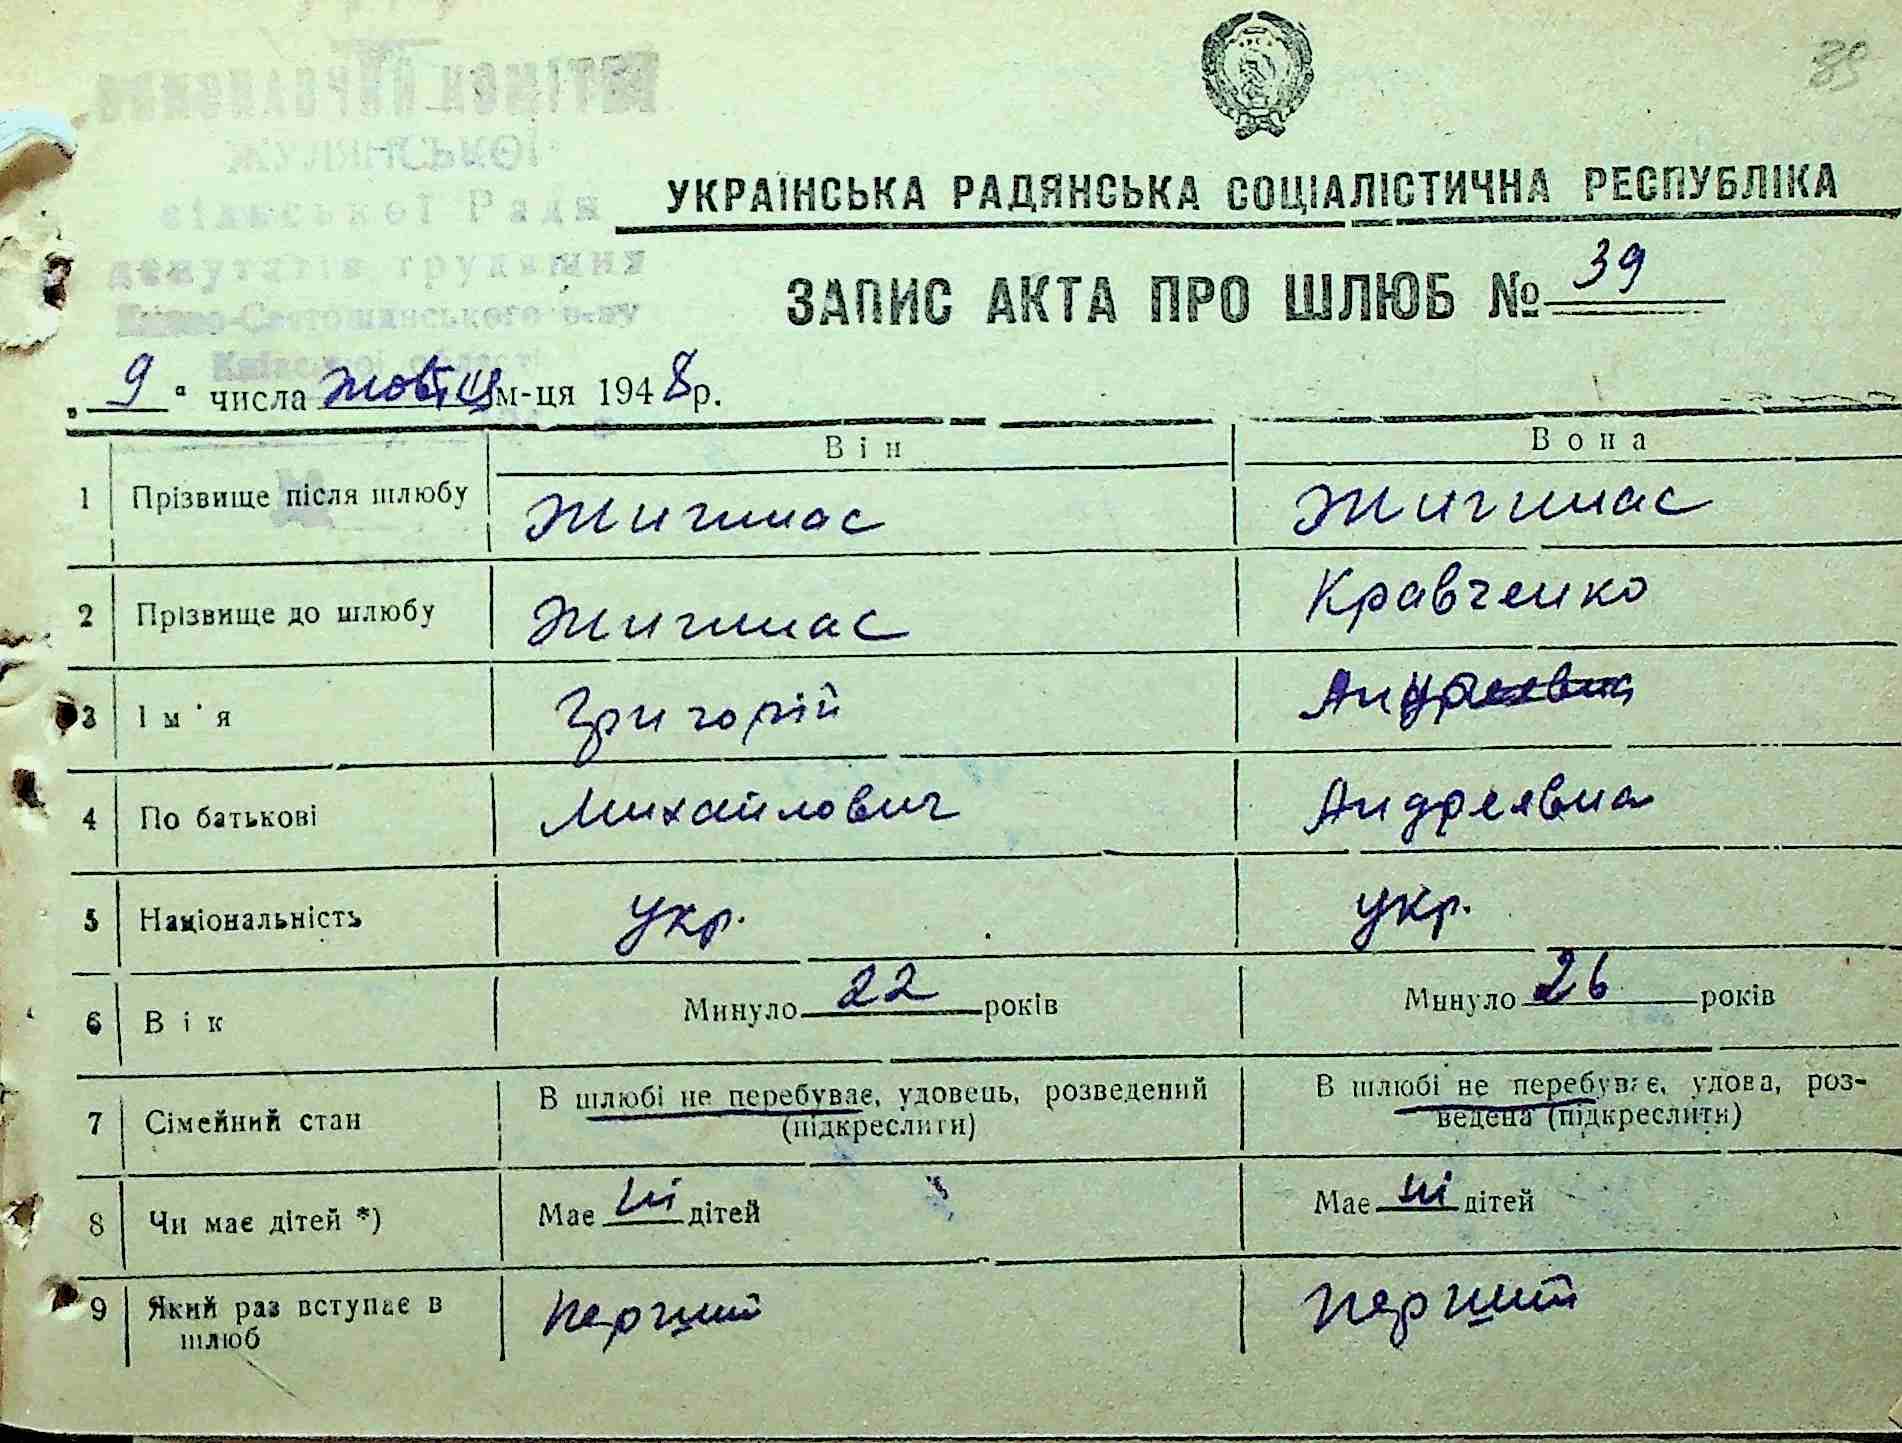 89
ВИКОНАВЧИЙ КОМІТЕТ
ЖУЛЯНСЬКОЇ
сільської Ради
депутатів трудящих
Києво-Святошинського р-ну
Київської області
УКРАЇНСЬКА РАДЯНСЬКА СОЦІАЛІСТИЧНА РЕСПУБЛІКА
ЗАПИС АКТА ПРО ШЛЮБ № 39
„ 9 " числа м-ця 1948 р.
Він Вона
1 Прізвище після шлюбу Жигмас Жигмас
2 Прізвище до шлюбу Жигмас Кравченко
3 Ім'я Григорій
4 По батькові Михайлович Андреевна
5 Національність укр. укр.
6 Вік Минуло 22 років Минуло 26 років
7 Сімейний стан В шлюбі не перебуває, удовець, розведений (підкреслити) В шлюбі не перебуває, удова, роз-
ведена (підкреслити)
8 Чи має дітей *) Має ні дітей Має ні дітей
9 Який раз вступає в шлюб перший перший